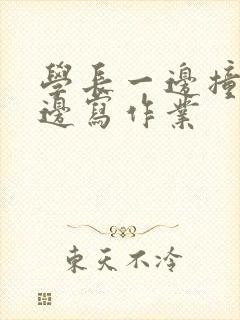 學長一邊撞
邊寫作業
東天不冷